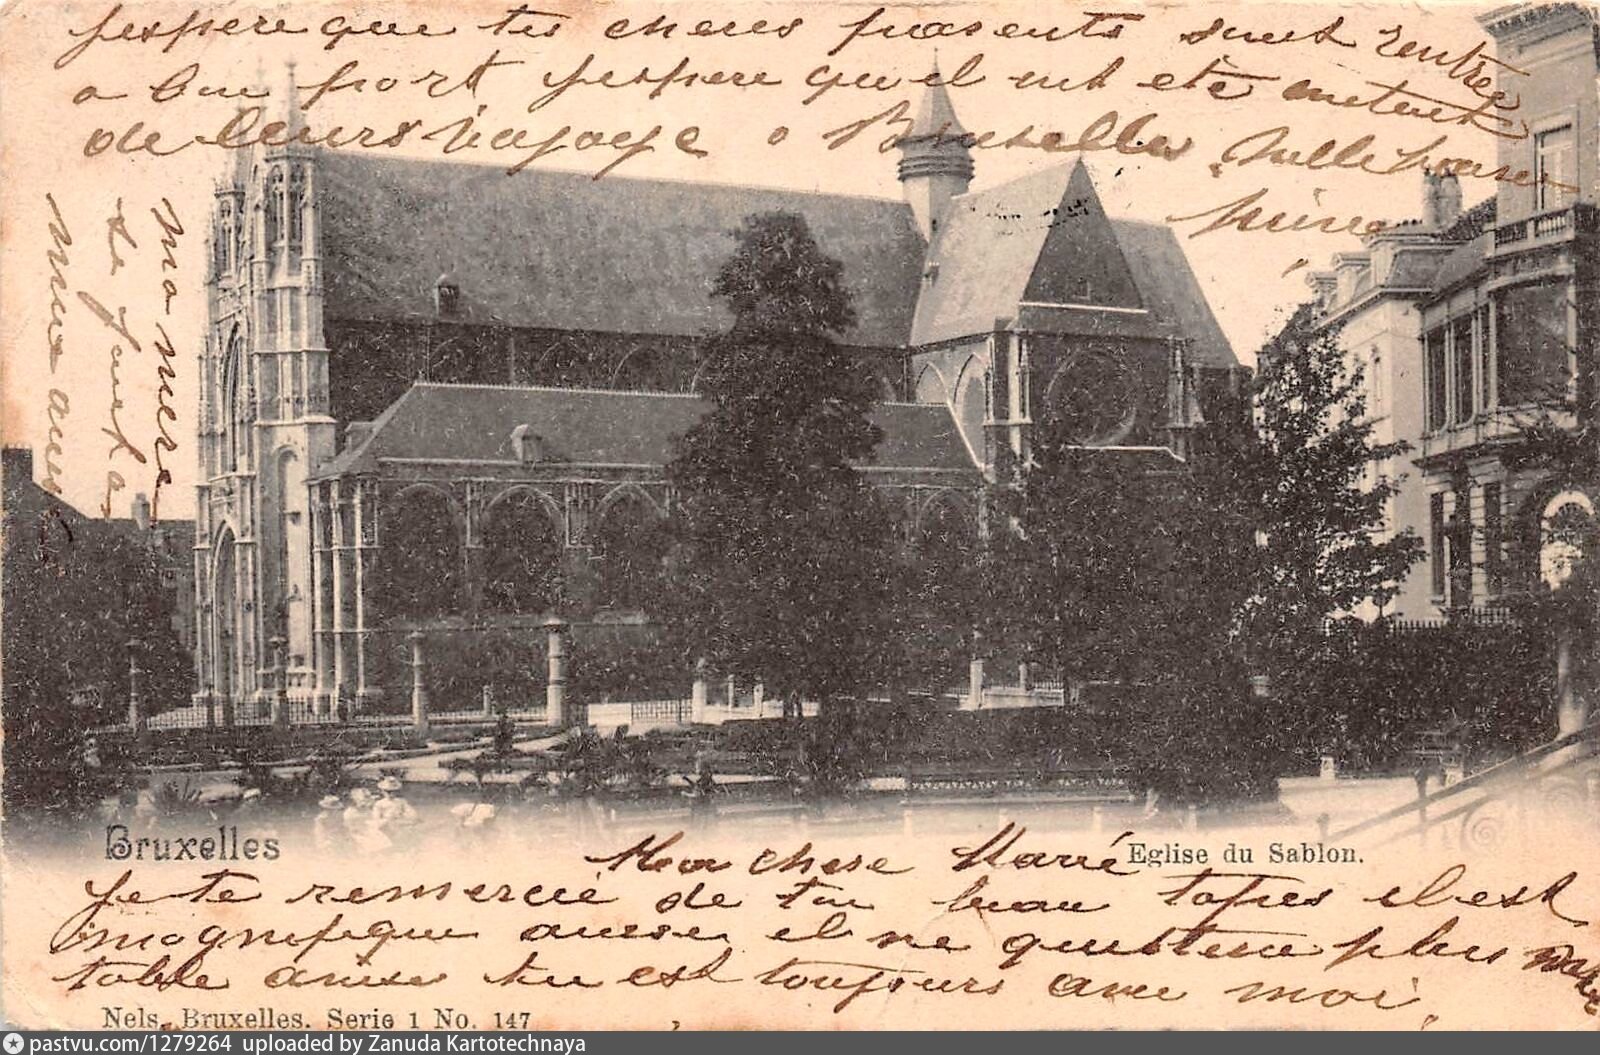 jespere que tes cheres parents sont rentrée
a bon port jespere qu'el ont etè contents
de leurs vayage a Bruxelles. Mille
ma mere
se joint a
Bruxelles
Eglise du Sablon.
Ma chere Marié
je te remercie de ton beau tapis il est
magnifique aussi il ne quittera plus ma
table ainsi tu est toujours avec moi.
Nels, Bruxelles. Serie 1 No. 147
pastvu.com/1279264 uploaded by Zanuda Kartotechnaya